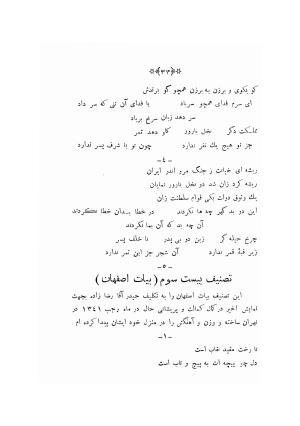 ﴿۳۳﴾
کو بکوی و برزن به برزن همچو گو براندش
ای سرم فدای همچو سرباد یا فدای آن تنی که سر داد
سر دهد زبان سرخ برباد
مملکت دگر نخل بارور کار دهد ثمر
جز تو هیچ یک نفر ندارد چون تو با شرف پسر ندارد
-٤-
ریشه ای خیانت ز جنگ مرو اندر ایران
ریشه کرد زان شد دو نخل بارور نمایان
یک وثوق دولت یکی قوام سلطنت زان
این دو بد گهر چه ها نکردند در خطا بدان خطا نکردند
آن چه بد که آن بما نکردند
چرخ حیله گر زین دو بی پدر نا خلف پسر
زیر قبهٔ قمر ندارد آن شجر جز این ثمر ندارد
-۵-
تصنیف بیست سوم ( بیات اصفهان )
این تصنیف بیات اصفهان را به تکلیف حیدر آقا رضا زاده بجهت
نمایش اخیر در کمال کسالت و پریشانی حال در ماه رجب ۱۳٤۱ در
تهران ساخته و وزن و آهنگش را در منزل خود ایشان پیدا کرده ام
-۱-
تا رخت مقید نقاب است
دل چو پیچه ات به پیچ و تاب است